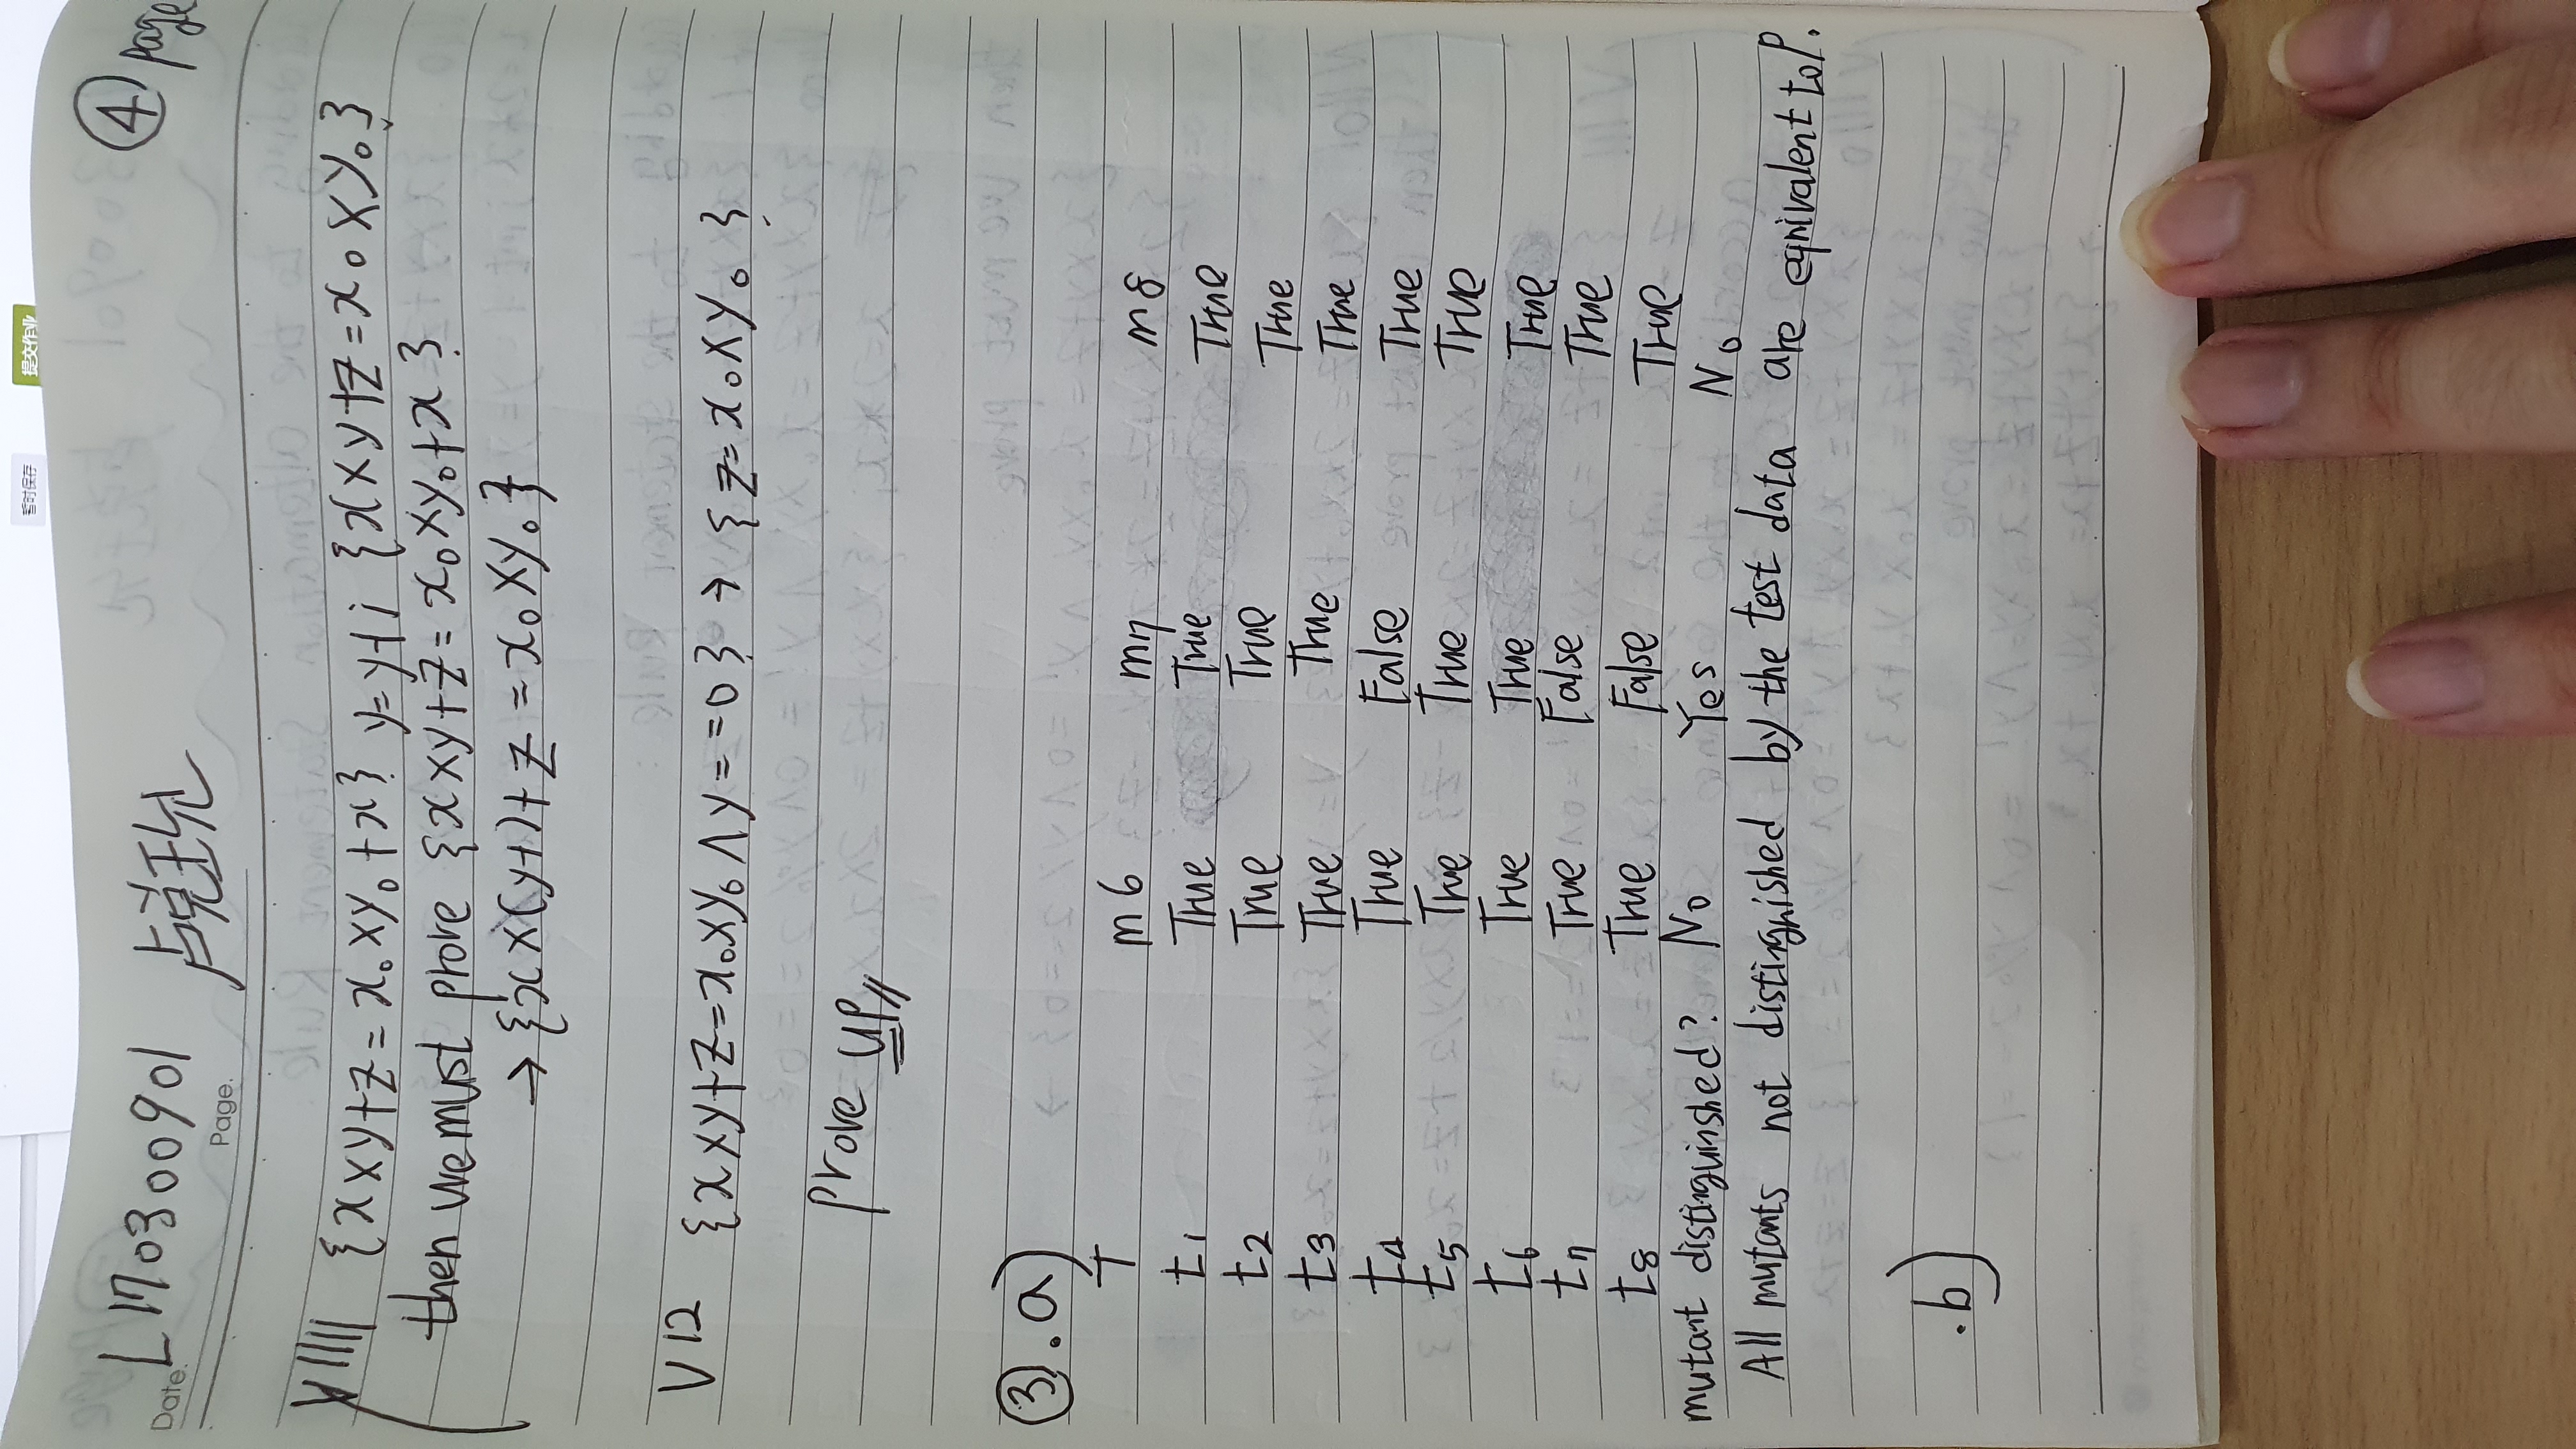 暂时保存 提交作业
L170300901 卢克玧 ④ page
Date.
Page.
V1111 {x×y+z=x₀×y₀+x} y=y+i {x×y+z=x₀×y₀}
then we must prove {x×y+z=x₀×y₀+x}
→ {x×(y+1)+z=x₀×y₀}
V12 {x×y+z=x₀×y₀∧y==0} → {z=x₀×y₀}
Prove up//
③.a)
T m6 m7 m8
t1 True True True
t2 True True True
t3 True True True
t4 True False True
t5 True True True
t6 True True True
t7 True False True
t8 True False True
mutant distinguinshed? No Yes No
All mutants not distinguished by the test data are equivalent to P.
.b)